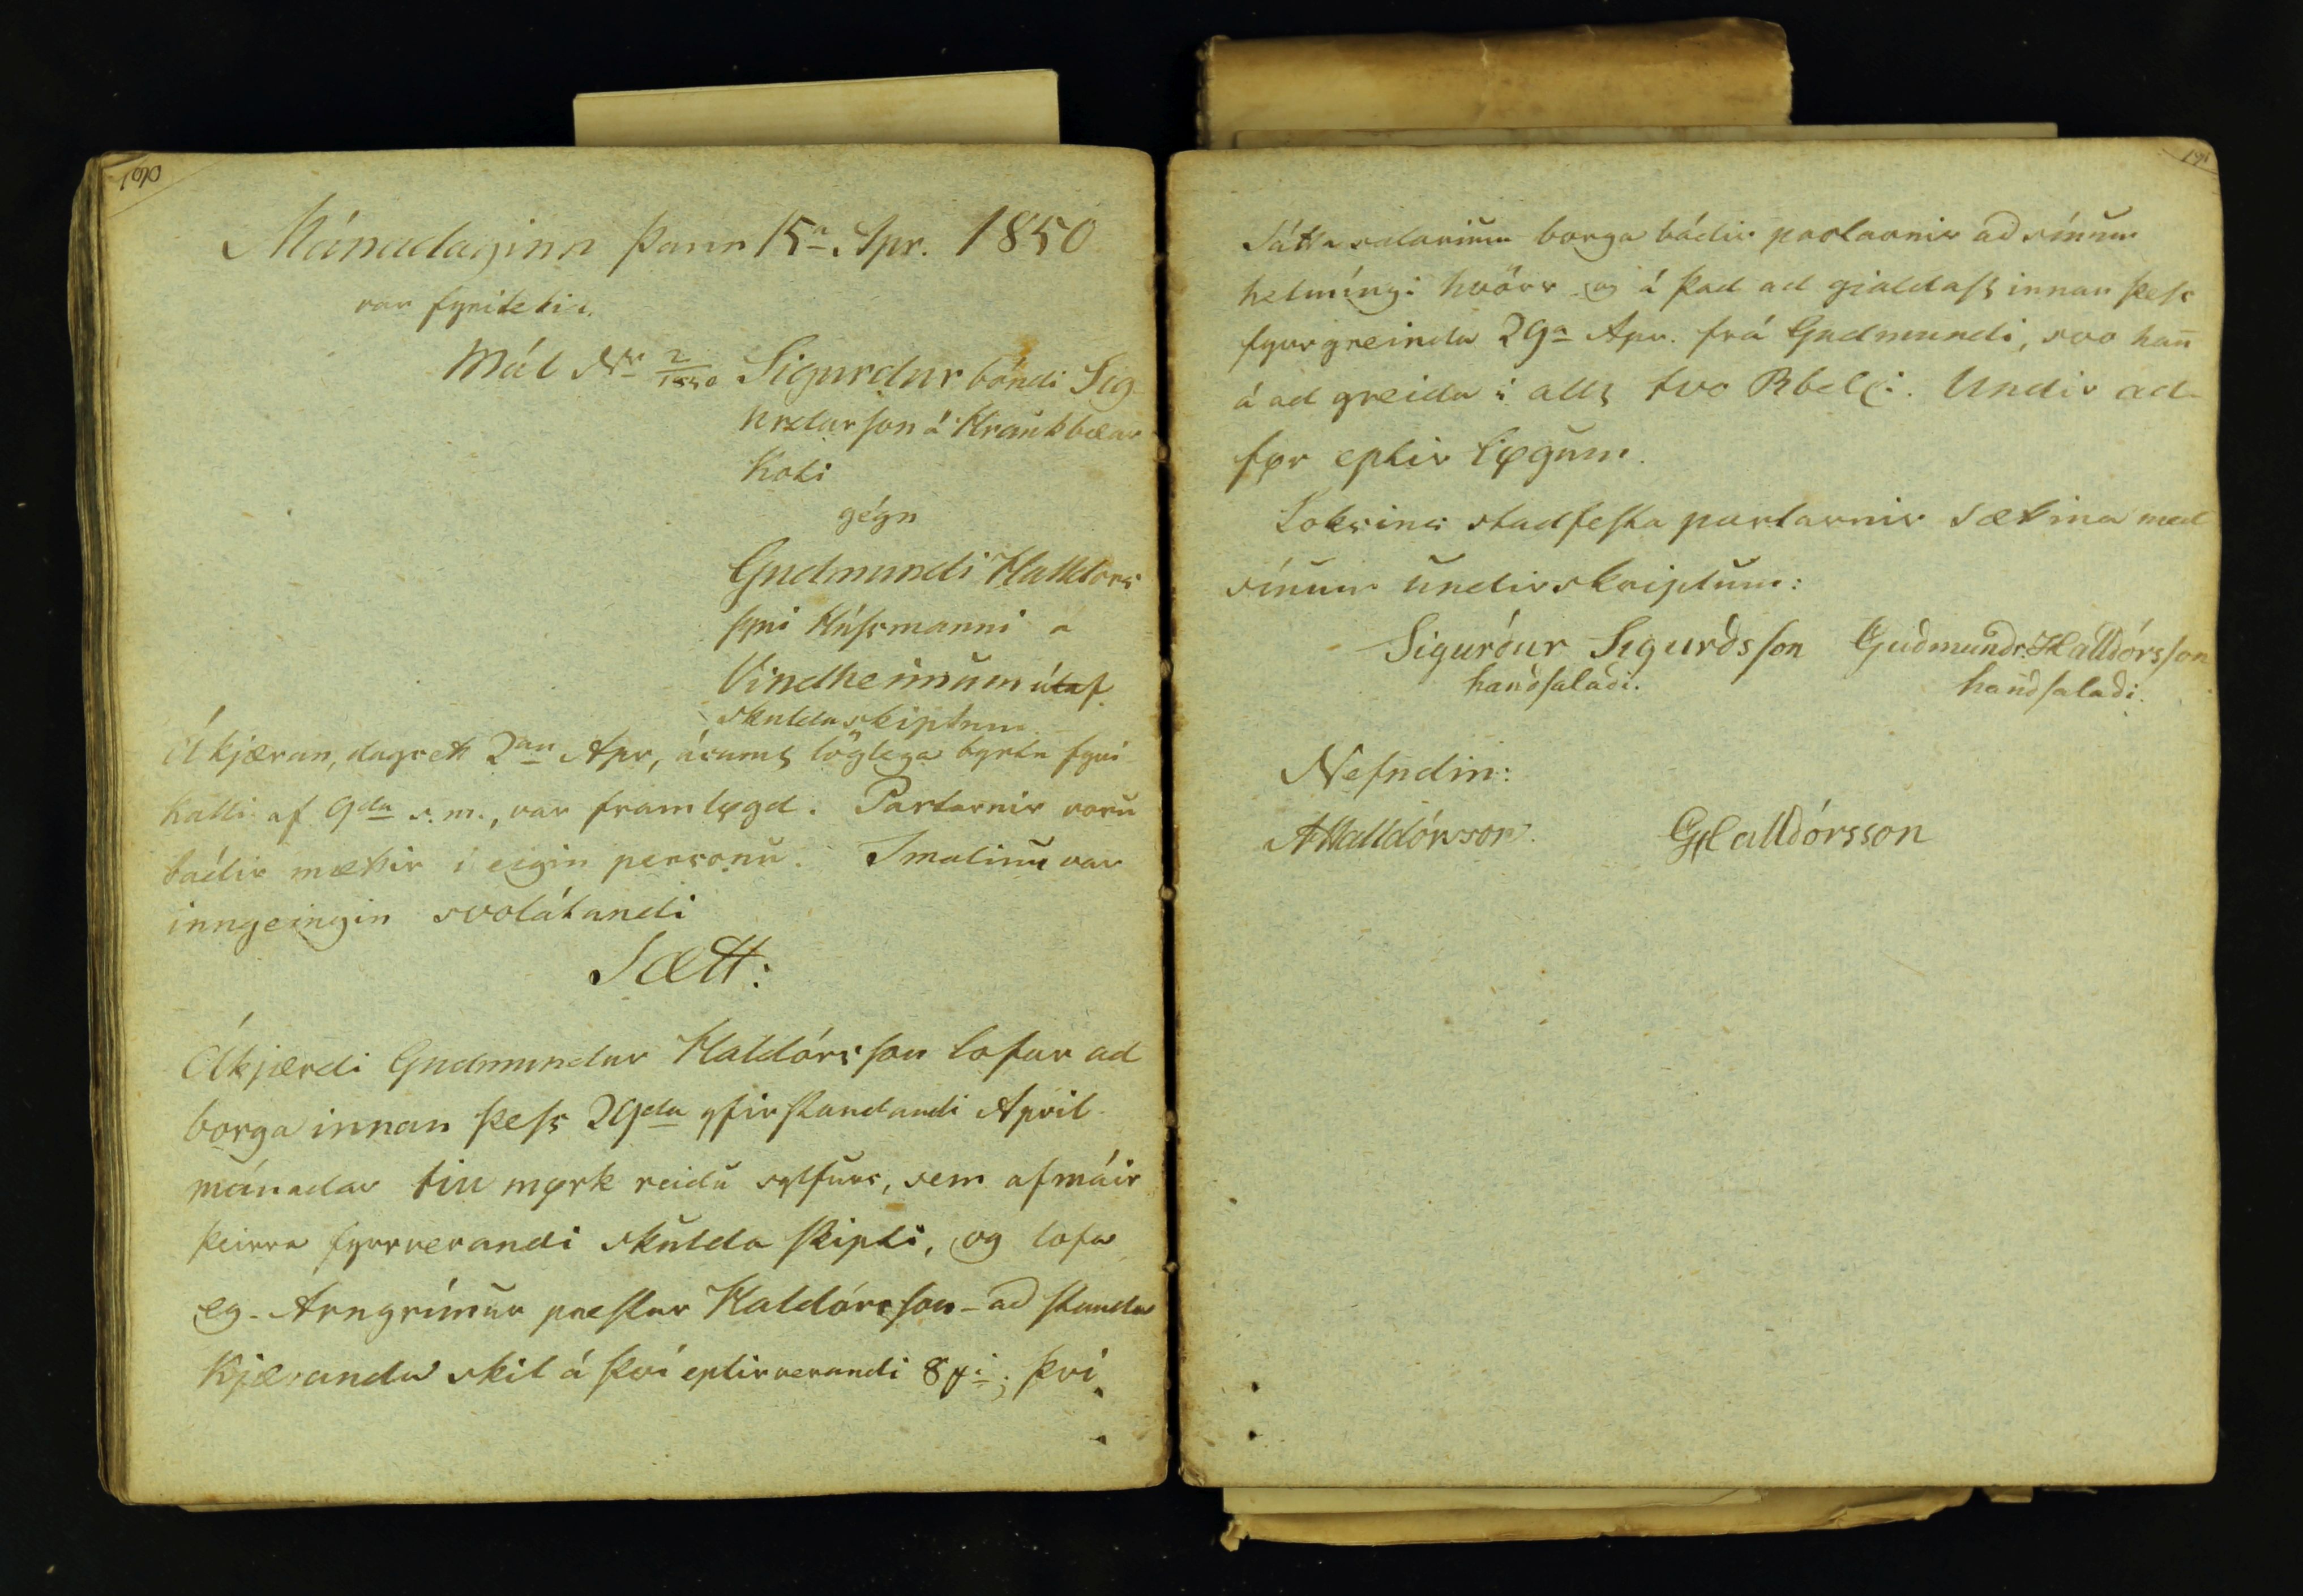 190
Mánudaginn þann 15a Apr. 1850
var fyritekid.
Mál Nr 2/1850 Sigurdur bóndi Sig
urdarson á Kraukbæar
koti
gégn
Gudmundi Halldors
syni Húsmanni a
Vindheimum útaf
skulda skiptum
Ákjæran, dagsett 2an Apr, ásamt löglega byrtu fyri
kalli af 9da s.m., var framløgd. Partarnir voru
bádir mættir i eigin personu. I malinu var
inngeingin svolátandi
Sætt:
Ákjærdi Gudmundur Haldórsson lofar ad
borga innan þess 29da yfirstandandi April
mánadar tiu mørk reidu sylfurs, sem afmáir
þeirra fyrrverandi skulda skipti, og lofa
eg - Arngrímur prestur Haldórsson - ad standa
Kjæranda skil á því eptirverandi 8 þvi
191
Sátta salarium borga bádir partarnir ad sínum
helmíngi hvörr og á þad ad gjaldast innan þess
fyrrgreinda 29a Apr. frá Gudmundi, svo han̄
á ad greida i allt tvo Rbdli. Undir ad-
før eptir løgum.
Loksins stadfesta partarnir sættina med
sínum undirskriptum:
Sigurður Sigurðsson Guðmundr. Halldórsson
handsalaði. handsalaði.
Nefndin:
AHalldórsson. GHalldórsson